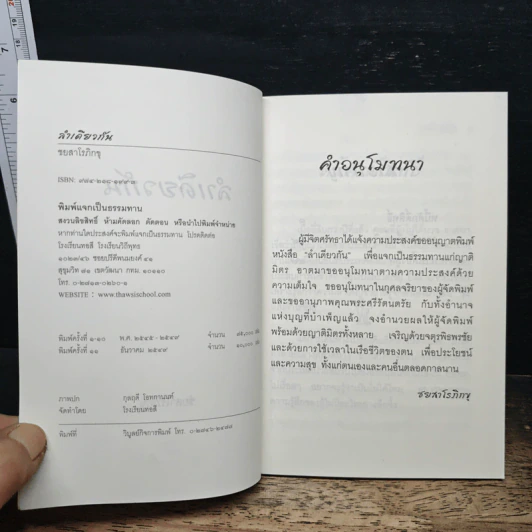 ลำเดียวกัน
ชยสาโรภิกขุ
ISBN:
พิมพ์แจกเป็นธรรมทาน
สงวนลิขสิทธิ์ ห้ามคัดลอก ตัดตอน หรือนำไปพิมพ์จำหน่าย
หากท่านใดประสงค์จะพิมพ์แจกเป็นธรรมทาน โปรดติดต่อ
โรงเรียนทอสี โรงเรียนวิถีพุทธ
๑๐๒๓/๔๖ ซอยปรีดีพนมยงค์ ๔๑
สุขุมวิท ๗๑ เขตวัฒนา กทม. ๑๐๑๑๐
โทร. ๐-๒๗๑๓-๐๒๖๐-๑
WEBSITE : www.thawsischool.com
พิมพ์ครั้งที่ ๑-๑๐ พ.ศ. ๒๕๔๕ - ๒๕๔๙ จำนวน
พิมพ์ครั้งที่ ๑๑ ธันวาคม ๒๕๔๙ จำนวน
ภาพปก กุลฤดี โอทกานนท์
จัดทำโดย โรงเรียนทอสี
พิมพ์ที่ วิบูลย์กิจการพิมพ์ โทร.
คำอนุโมทนา
ผู้มีจิตศรัทธาได้แจ้งความประสงค์ขออนุญาตพิมพ์
หนังสือ "ลำเดียวกัน" เพื่อแจกเป็นธรรมทานแก่ญาติ
มิตร อาตมาขออนุโมทนาตามความประสงค์ด้วย
ความเต็มใจ ขออนุโมทนาในกุศลจริยาของผู้จัดพิมพ์
และขออานุภาพคุณพระศรีรัตนตรัย กับทั้งอำนาจ
แห่งบุญที่บำเพ็ญแล้ว จงอำนวยผลให้ผู้จัดพิมพ์
พร้อมด้วยญาติมิตรทั้งหลาย เจริญด้วยจตุรพิธพรชัย
และด้วยการใช้เวลาในเรือชีวิตของตน เพื่อประโยชน์
และความสุข ทั้งแก่ตนเองและคนอื่นตลอดกาลนาน
ชยสาโรภิกขุ